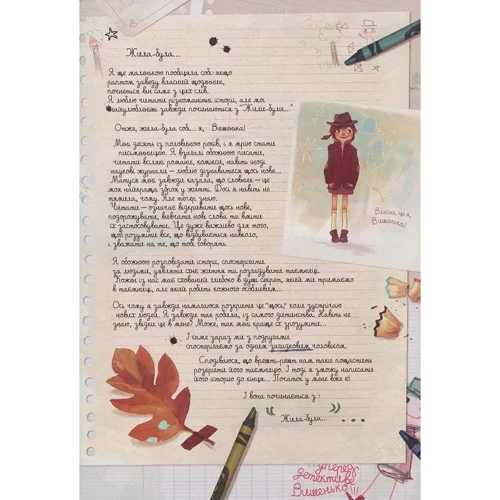 Жила-була...
Я ще маленькою пообіцяла собі: якщо
раптом заведу власний щоденник,
почнеться він саме з цих слів.
Я люблю читати різноманітні історії, але мої
найулюбленіші завжди починаються з "Жили-були..."
Отже, жила-була собі... я, Вишенька!
Мені десять із половиною років, і я мрію стати
письменницею. А взагалі обожнюю писати,
читати всілякі романи, комікси, навіть іноді
наукові журнали — люблю дізнаватися щось нове...
Матуся мені завжди казала, що словник — це
моя найкраща зброя у житті. Досі я навіть не
тямила, чому. Але тепер знаю.
Читати — означає відкривати щось нове,
подорожувати, вивчати нові слова та вміти
їх застосовувати. Це дуже важливо для того,
щоб розуміти все, що відбувається навколо,
і зважати на те, що тобі говорять.
Власне, це я,
Вишенька!
Я обожнюю розповідати історії, спостерігати
за людьми, уявляти їхнє життя та розгадувати таємниці.
Кожен із нас має схований глибоко в душі секрет, який ми тримаємо
в таємниці, але який робить кожного особливим...
Ось чому я завжди намагаюся розкрити це "щось", коли зустрічаю
нових людей. Я завжди так робила, із самого дитинства. Навіть не
знаю, звідки це в мене! Може, так мені краще їх зрозуміти...
І саме зараз ми з подругами
спостерігаємо за одним загадковим чоловіком.
Сподіваюся, що врешті-решт нам таки пощастить
розкрити його таємницю. І тоді я зможу написати
його історію до кінця... Початок у мене вже є!
І вона починається з:
" Жила-була... "
уперед,
детективе
Вишенько!